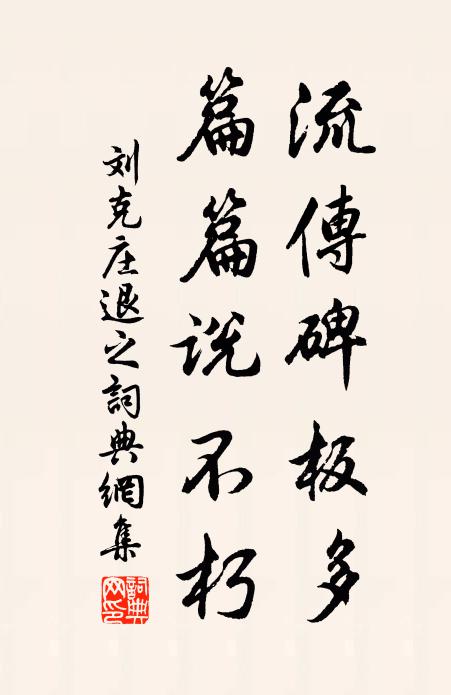 流傳碑板多
篇篇説不朽
刘克庄退之詞典網集
詞典网印